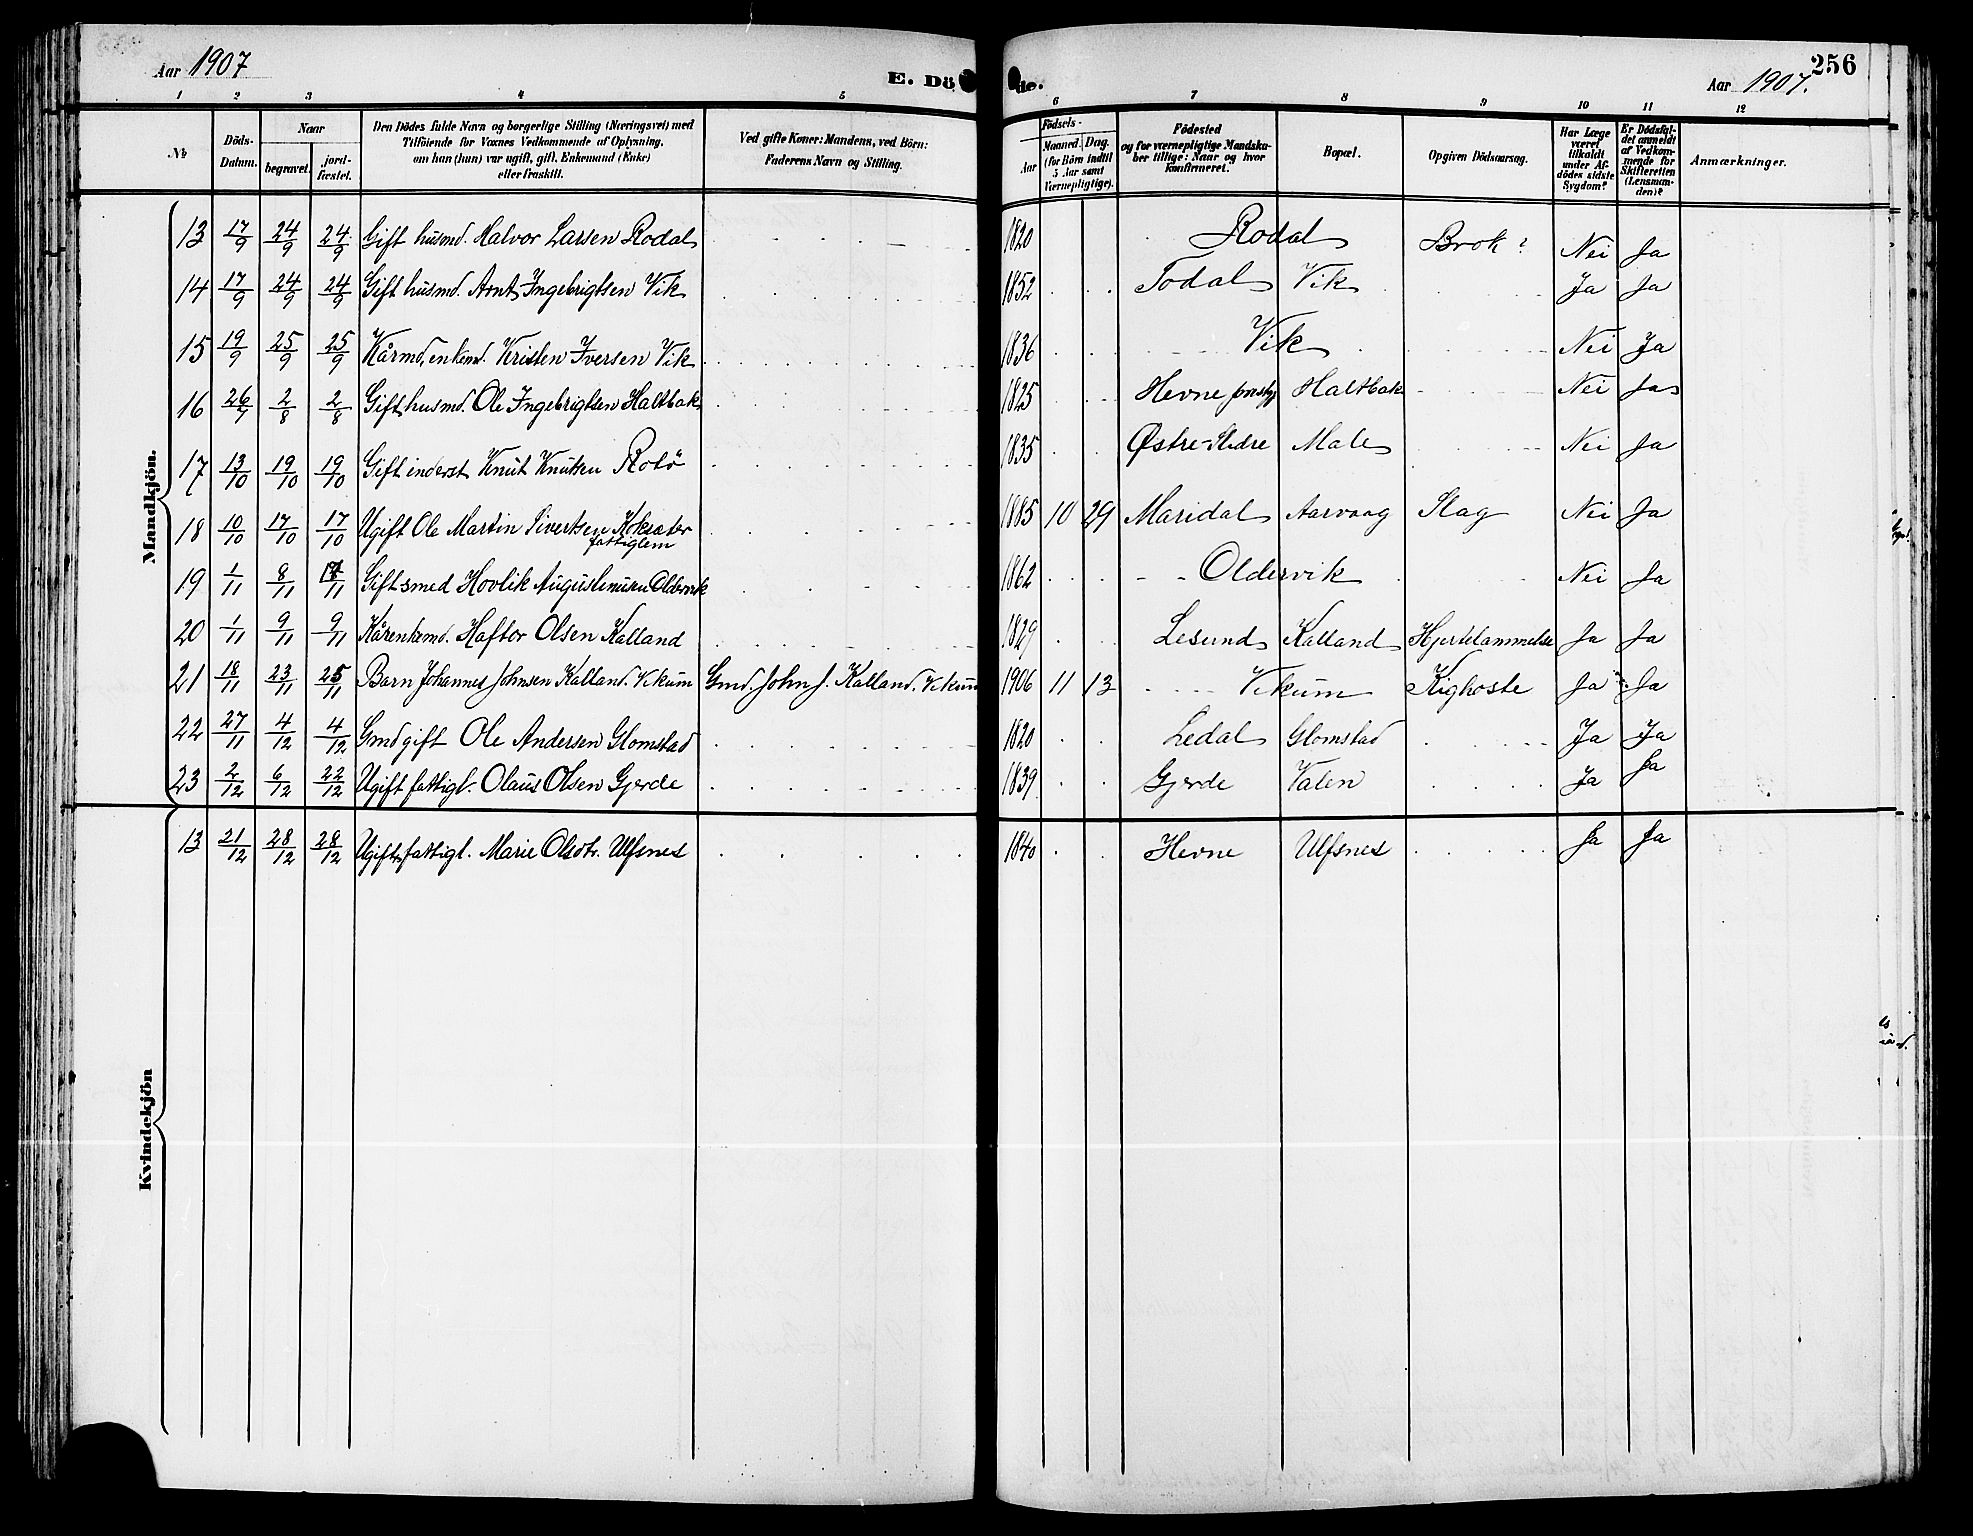 Aar 1907
E. Döde.
Aar 1907.
256
1 2 3 4 5 6 7 8 9 10 11 12
No
Döds-Datum.
Naar
begravet.
jord-fæstet.
Den Dödes fulde Navn og borgerlige Stilling (Næringsvei) med
Tilföiende for Voxnes Vedkommende af Oplysning,
om han (hun) var ugift, gift, Enkemand (Enke)
eller fraskilt.
Ved gifte Koner: Mandens, ved Börn:
Faderens Navn og Stilling.
Födsels-
Aar
Maaned. Dag.
(for Börn indtil
5 Aar samt
Værnepligtige).
Födested
og for værnepligtige Mandska-
ber tillige: Naar og hvor
konfirmeret.
Bopæl.
Opgiven Dödsaarsag.
Har Læge
været
tilkaldt
under Af-
dödes sidste
Sygdom?
Er Dödsfal-
det anmeldt
af Vedkom-
mende for
Skifteretten
(Lensman-
den)?
Anmærkninger.
Mandkjön.
13 17/9 24/9 24/9 Gift husmd. Halvor Larsen Rodal 1820 Rodal Brok? Nei Ja
14 17/9 24/9 24/9 Gift husmd. Arnt Ingebrigtsen Vik 1852 Todal Vik Ja Ja
15 19/9 25/9 25/9 Kårmd, enkemd. Kristen Iversen Vik 1836 Vik Nei Ja
16 26/7 2/8 2/8 Gift husmd. Ole Ingebrigtsen Haltbak 1825 Hevne Haltbak Nei Ja
17 13/10 19/10 19/10 Gift inderst Knut Knutsen Rotö 1835 Østre-Slidre Male Nei Ja
18 10/10 17/10 17/10 Ugift Ole Martin Sivertsen
fattiglem 1885 10 29 Maridal Aarvaag Slag Nei Ja
19 1/11 8/11 /11 Gift smed Hovlik Augustinusen Oldervik 1862 Oldervik Nei Ja
20 1/11 9/11 9/11 Kårenkemd. Haftor Olsen Kalland 1829 Lesund Kalland Hjertelammelse Ja Ja
21 18/11 23/11 25/11 Barn Johannes Johnsen Kalland. Vikum Gmd. John J. Kalland. Vikum 1906 11 13 Vikum Kighoste Ja Ja
22 27/11 4/12 4/12 Gmd gift Ole Andersen Glomstad 1820 Ledal Glomstad Ja Ja
23 2/12 6/12 22/12 Ugift fattigl. Olaus Olsen Gjerde 1839 Gjerde Valen Ja Ja
Kvindekjön
13 21/12 28/12 28/12 Ugift fattigl. Marie Olsdtr. Ulfsnes 1840 Hevne Ulfsnes Ja Ja